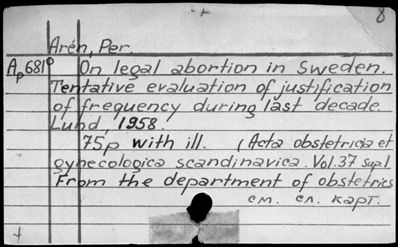 8
Arén, Per.
Ap681° On legal abortion in Sweden.
Tentative evaluation of justification
of frequency during last decade.
Lund, 1958.
75p with ill. (Acta obstetricia et
gynecologica scandinavica. Vol.37 supl
From the department of obstetrics
см. сл. карт.